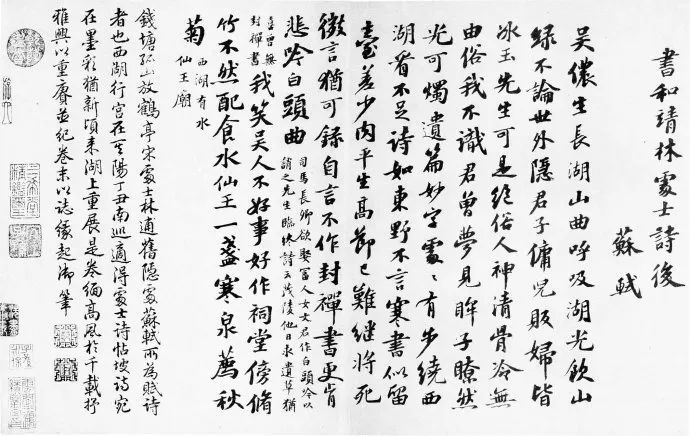 書和靖林處士詩後
蘇軾
吳儂生長湖山曲呼吸湖光飲山
綠不論世外隱君子傭兒販婦皆
冰玉先生可是絕俗人神清骨冷無
由俗我不識君曾夢見眸子瞭然
光可燭遺篇妙字處〻有步繞西
湖看不足詩如東野不言寒書似留
臺差少肉平生高節已難繼將死
微言猶可錄自言不作封禪書更肯
悲吟白頭曲
司馬長卿欲娶富人女文君作白頭吟以
誚之先生臨終詩云茂陵他日求遺草猶
喜曾無
封禪書
我笑吳人不好事好作祠堂傍脩
竹不然配食水仙王一盞寒泉薦秋
菊
西湖有水
仙王廟
錢塘孤山放鶴亭宋處士林逋舊隱處蘇軾所為賦詩
者也西湖行宮在其陽丁丑南巡適得處士詩帖坡詩宛
在墨彩猶新頃來湖上重展是卷緬高風於千載抒
雅興以重賡並紀卷末以誌緣起御筆